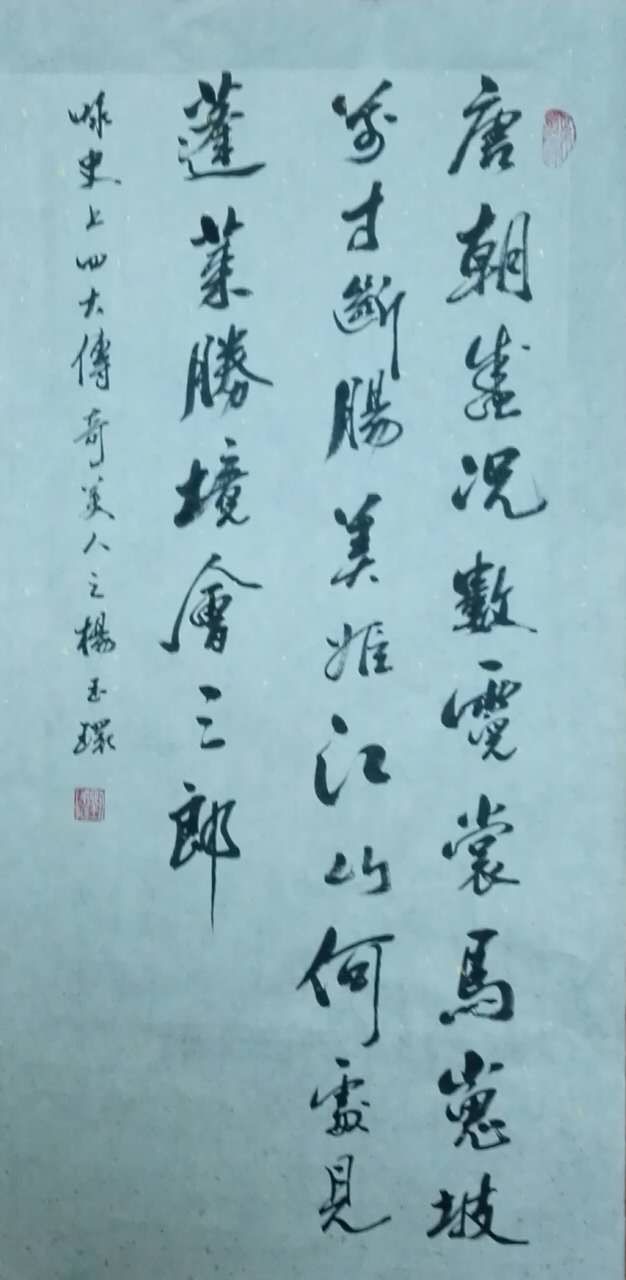 唐朝盛况數霓裳馬嵬坡
前寸斷腸美姬江山何處見
蓬萊勝境會三郎
詠史上四大傳奇美人之楊玉環